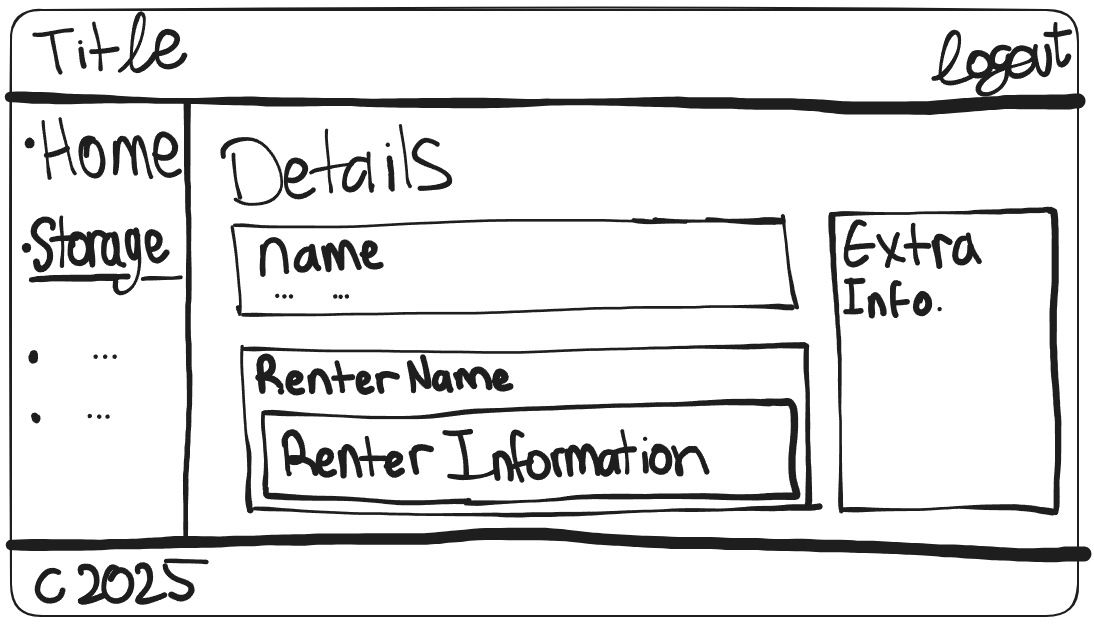 Title
logout
• Home
• Storage
• ...
• ...
Details
name
... ...
Renter Name
Renter Information
Extra
Info.
C 2025